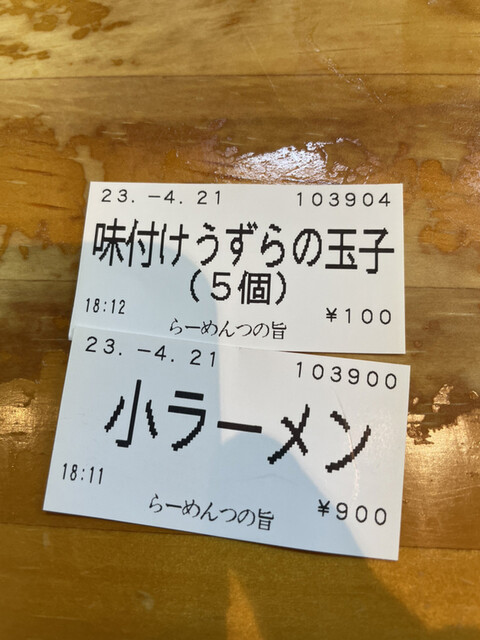 23.-4.21 103904
味付けうずらの玉子
(5個)
18:12 ¥100
らーめんつの旨
23.-4.21 103900
小ラーメン
18:11
らーめんつの旨 ¥900